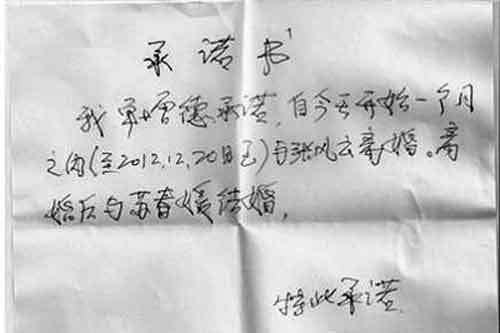 承诺书
我单增德承诺，自今天开始一个月
之内(至2012.12.20日止)与张风云离婚。离
婚后与苏春媛结婚，
特此承诺